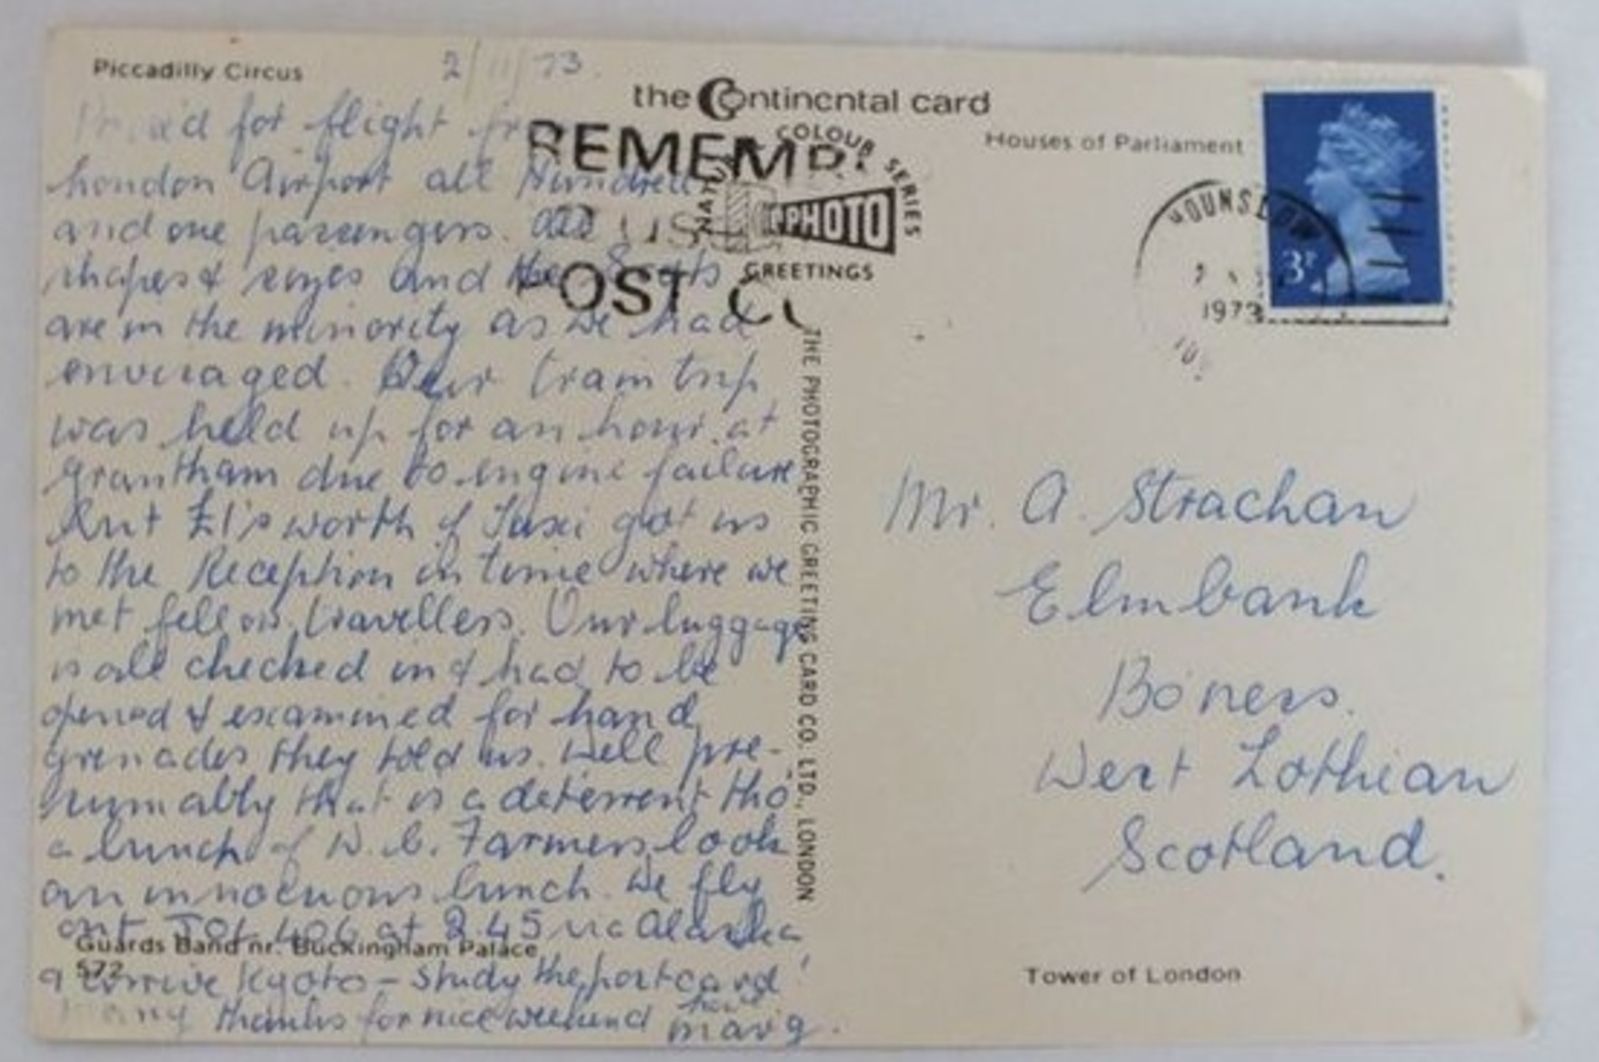 Piccadilly Circus
2/11/73.
the Continental card
COLOUR SERIES
PHOTO
GREETINGS
Houses of Parliament
REMEMB
US
POST C
HOUNSLOW
1973
3P
for flight
London Airport all Hundred
and one passengers. All
shapes & sizes and the Scots
are in the minority as we had
envisaged. Our train trip
was held up for an hour at
Grantham due to engine failure
but £1's worth of Taxi got us
to the Reception in time where we
met fellow travellers. Our luggage
is all checked in & had to be
opened & examined for hand
grenades they told us. Well pre-
sumably that is a deterrent tho'
a bunch of W. C. Farmers look
an innocuous bunch. We fly
out 406 at 2.45 via Alaska
& arrive Kyoto - study the postcard!
Many thanks for nice weekend
Marg.
Guards Band nr. Buckingham Palace
572
THE PHOTOGRAPHIC GREETING CARD CO. LTD., LONDON
Mr. A. Strachan
Elmbank
Bo'ness.
West Lothian
Scotland.
Tower of London